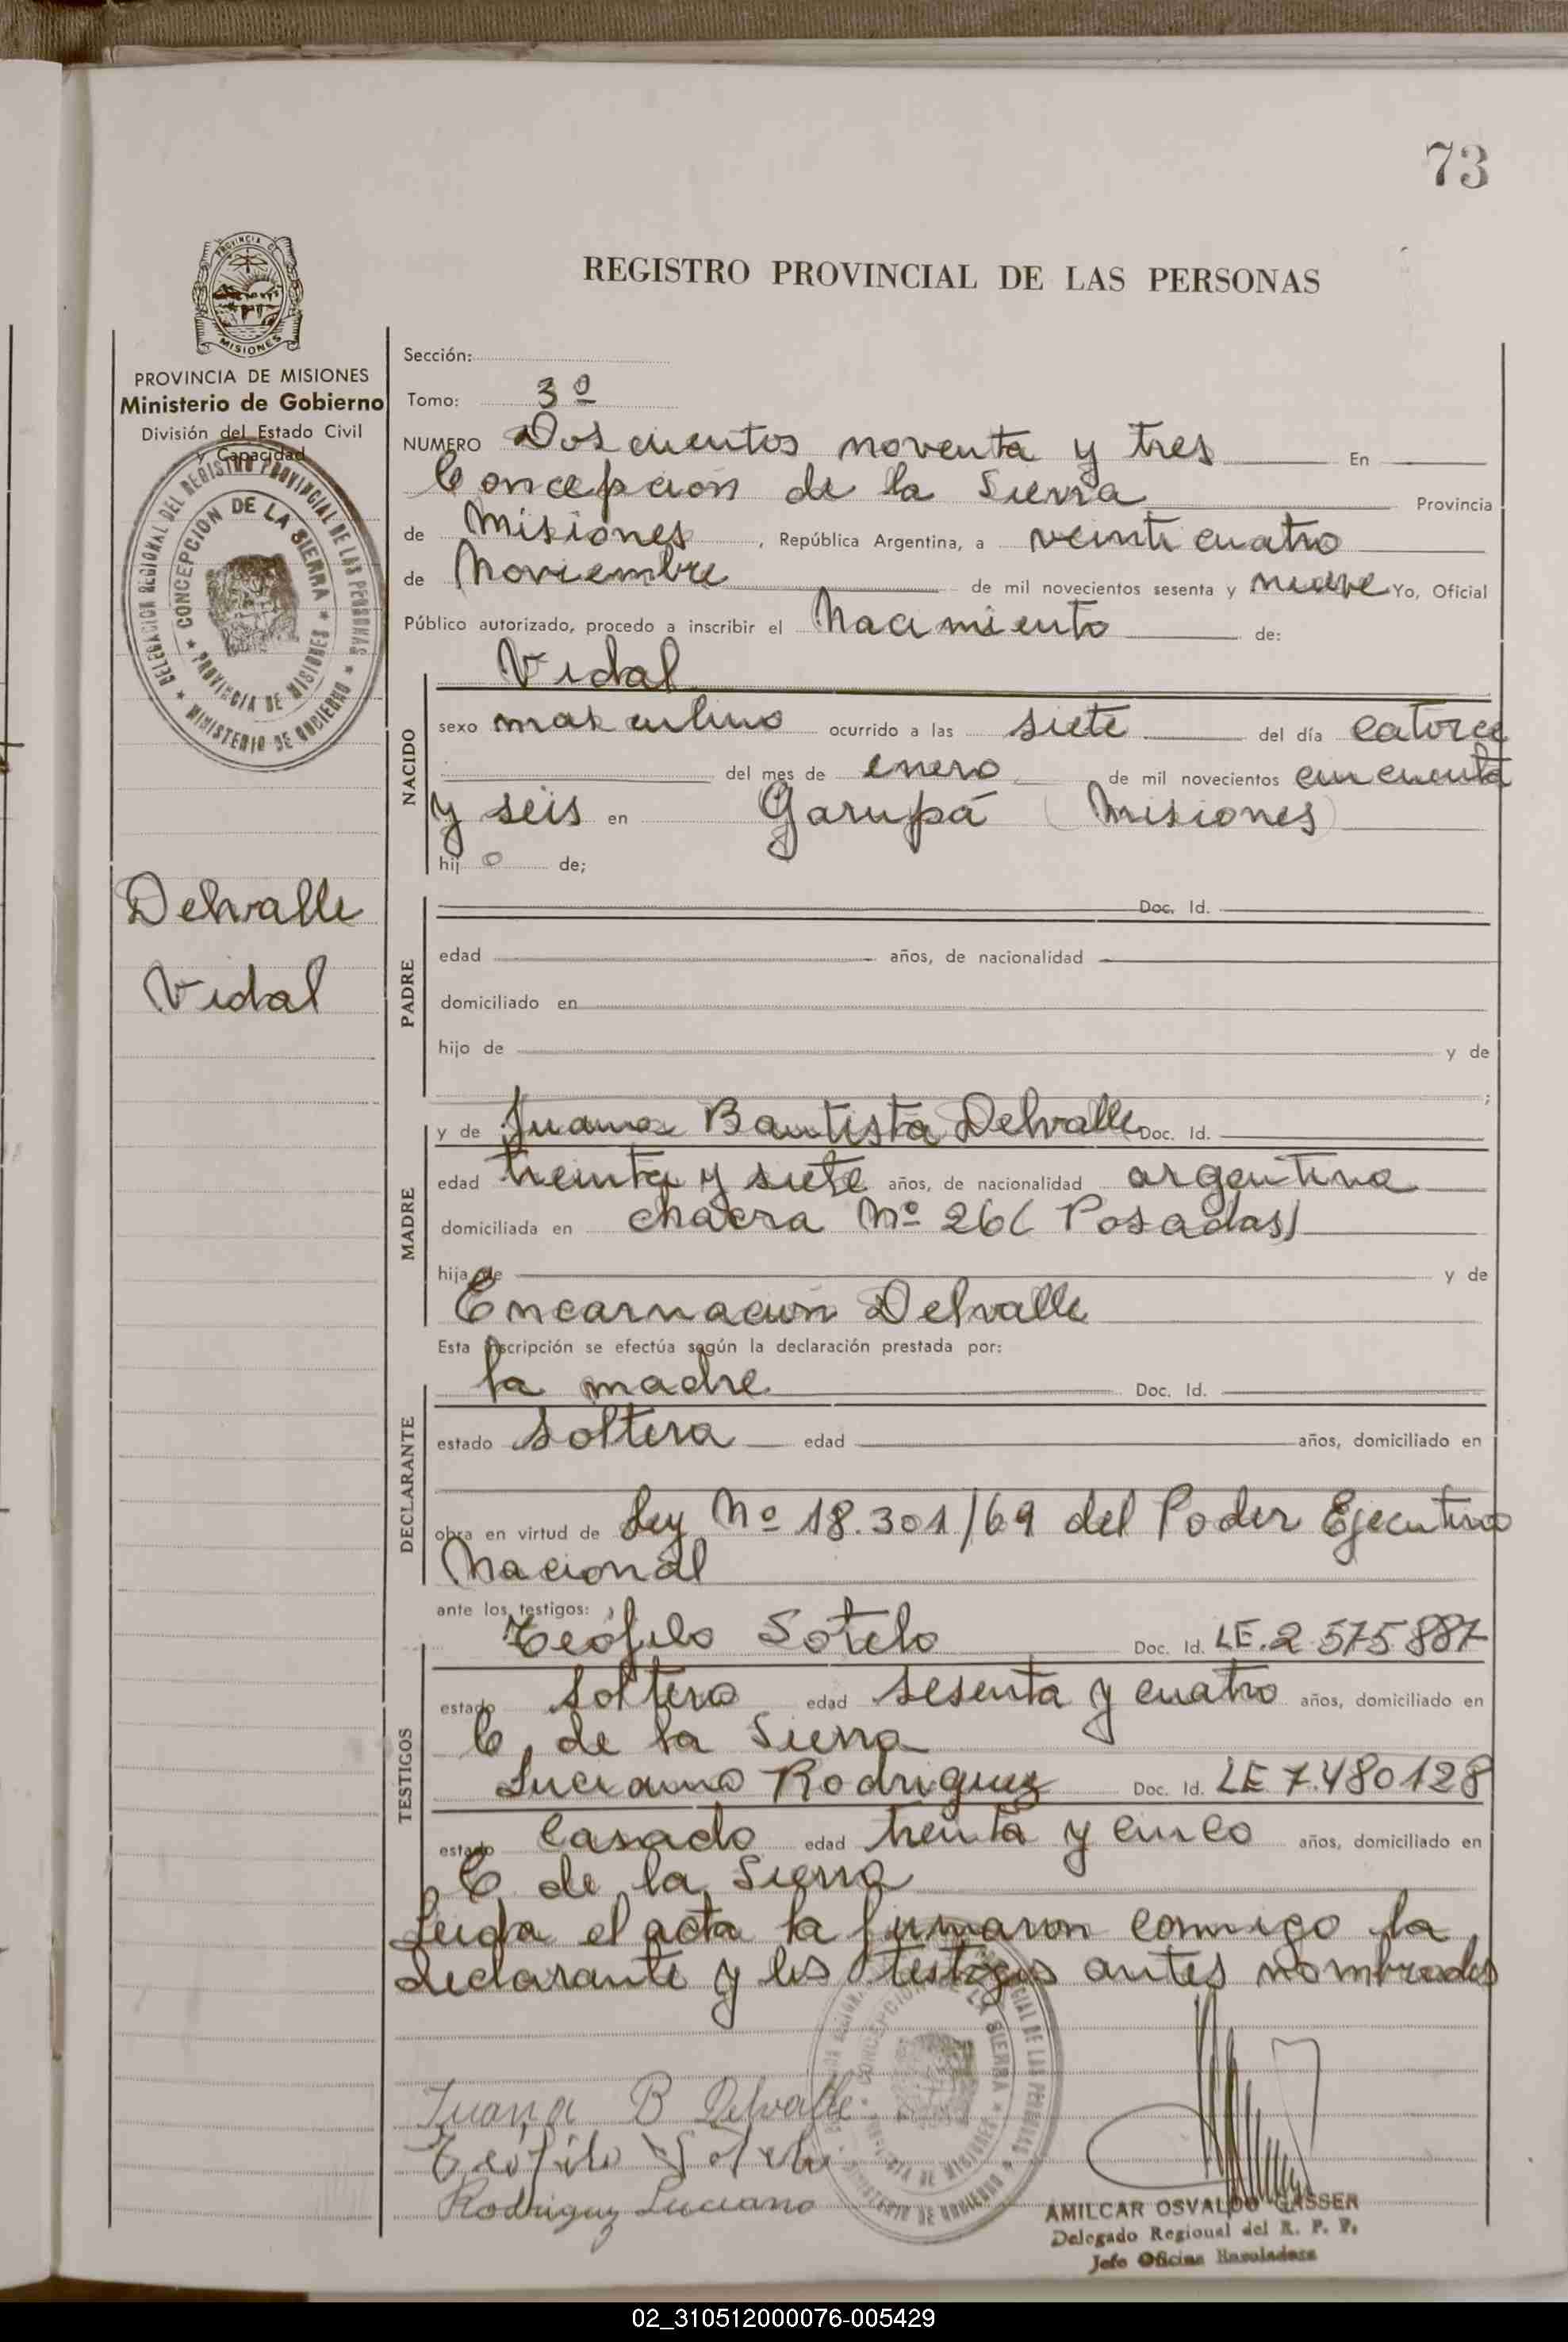 73
PROVINCIA DE
MISIONES
REGISTRO PROVINCIAL DE LAS PERSONAS
PROVINCIA DE MISIONES
Ministerio de Gobierno
División del Estado Civil
y Capacidad
DELEGACION REGIONAL DEL REGISTRO PROVINCIAL DE LAS PERSONAS
★ MINISTERIO DE GOBIERNO ★
CONCEPCION DE LA SIERRA
★ PROVINCIA DE MISIONES ★
Delvalle
Vidal
Sección:
Tomo: 3º
NUMERO Dos cientos noventa y tres En
Concepción de la Sierra Provincia
de Misiones, República Argentina, a veinticuatro
de Noviembre de mil novecientos sesenta y nueve Yo, Oficial
Público autorizado, procedo a inscribir el Nacimiento de:
NACIDO
Vidal
sexo masculino ocurrido a las siete del día catorce
del mes de enero de mil novecientos cincuenta
y seis en Garupá (Misiones)
hijo de;
PADRE
Doc. Id.
edad años, de nacionalidad
domiciliado en
hijo de y de
;
MADRE
y de Juana Bautista Delvalle Doc. Id.
edad treinta y siete años, de nacionalidad argentina
domiciliada en chacra Nº 26( Posadas)
hija de y de
Encarnación Delvalle
Esta inscripción se efectúa según la declaración prestada por:
DECLARANTE
la madre Doc. Id.
estado Soltera edad años, domiciliado en
obra en virtud de Ley Nº 18.301/69 del Poder Ejecutivo
Nacional
ante los testigos:
TESTIGOS
Teófilo Sotelo Doc. Id. LE.2.575.887
estado Soltero edad sesenta y cuatro años, domiciliado en
C. de la Sierra
Luciano Rodriguez Doc. Id. LE 7.480128
estado Casado edad treinta y cinco años, domiciliado en
C. de la Sierra
Leida el acta la firmaron conmigo la
declarante y los testigos antes nombrados
Juana B Delvalle
Teófilo Sotelo
Rodriguez Luciano
AMILCAR OSVALDO GASSER
Delegado Regional del R. P. P.
Jefe Oficina Enroladora
02_310512000076-005429